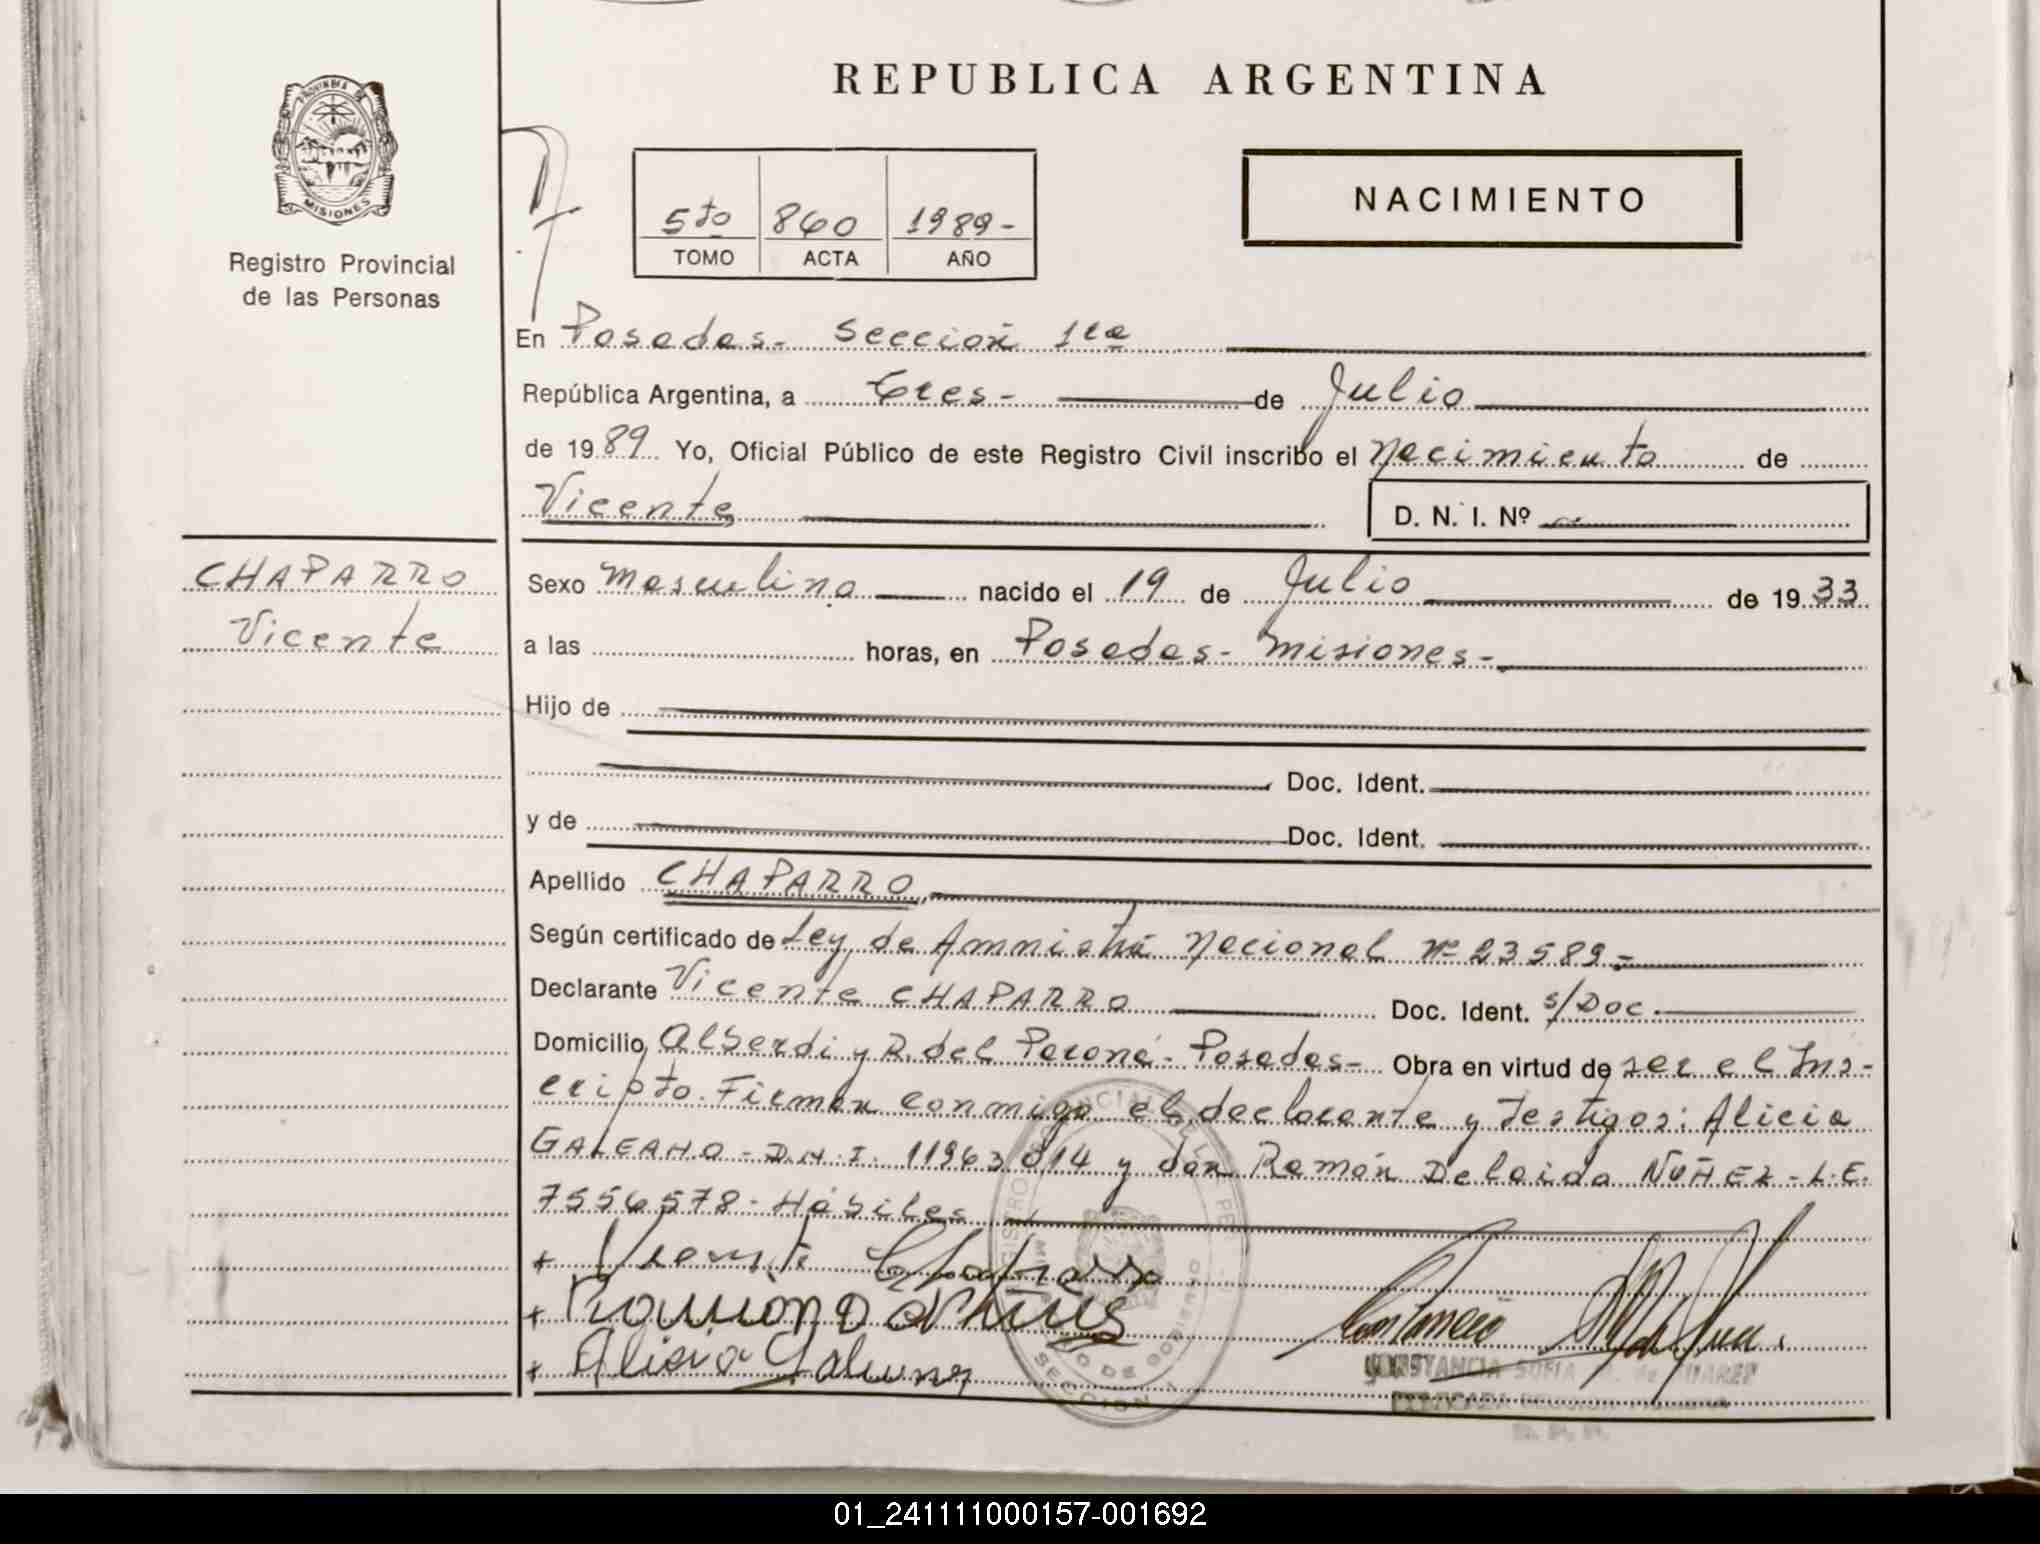 REPUBLICA ARGENTINA
PROVINCIA DE
MISIONES
Registro Provincial
de las Personas
5to 860 1989-
TOMO ACTA AÑO
NACIMIENTO
En Posadas- Sección 1ra
República Argentina, a Tres- de Julio
de 1989 Yo, Oficial Público de este Registro Civil inscribo el Nacimiento de
Vicente D. N. I. Nº
CHAPARRO
Vicente
Sexo Masculino nacido el 19 de Julio de 1933
a las horas, en Posadas- Misiones-
Hijo de
Doc. Ident.
y de Doc. Ident.
Apellido CHAPARRO
Según certificado de Ley de Amnistía Nacional Nº 23589=
Declarante Vicente CHAPARRO Doc. Ident. s/Doc
Domicilio Alberdi y R. del Paraná- Posadas- Obra en virtud de ser el Ins-
cripto. Firman conmigo el declarante y testigos: Alicia
GALEANO - D.N.I. 11963014 y don Ramón Delcida NUÑEZ - L.E.
7556578- Hábiles
+ Vicente Chaparro
+ Ramon D
+ Alicia Galeano
CONSTANCIA SOFIA de SUAREZ
SECCION